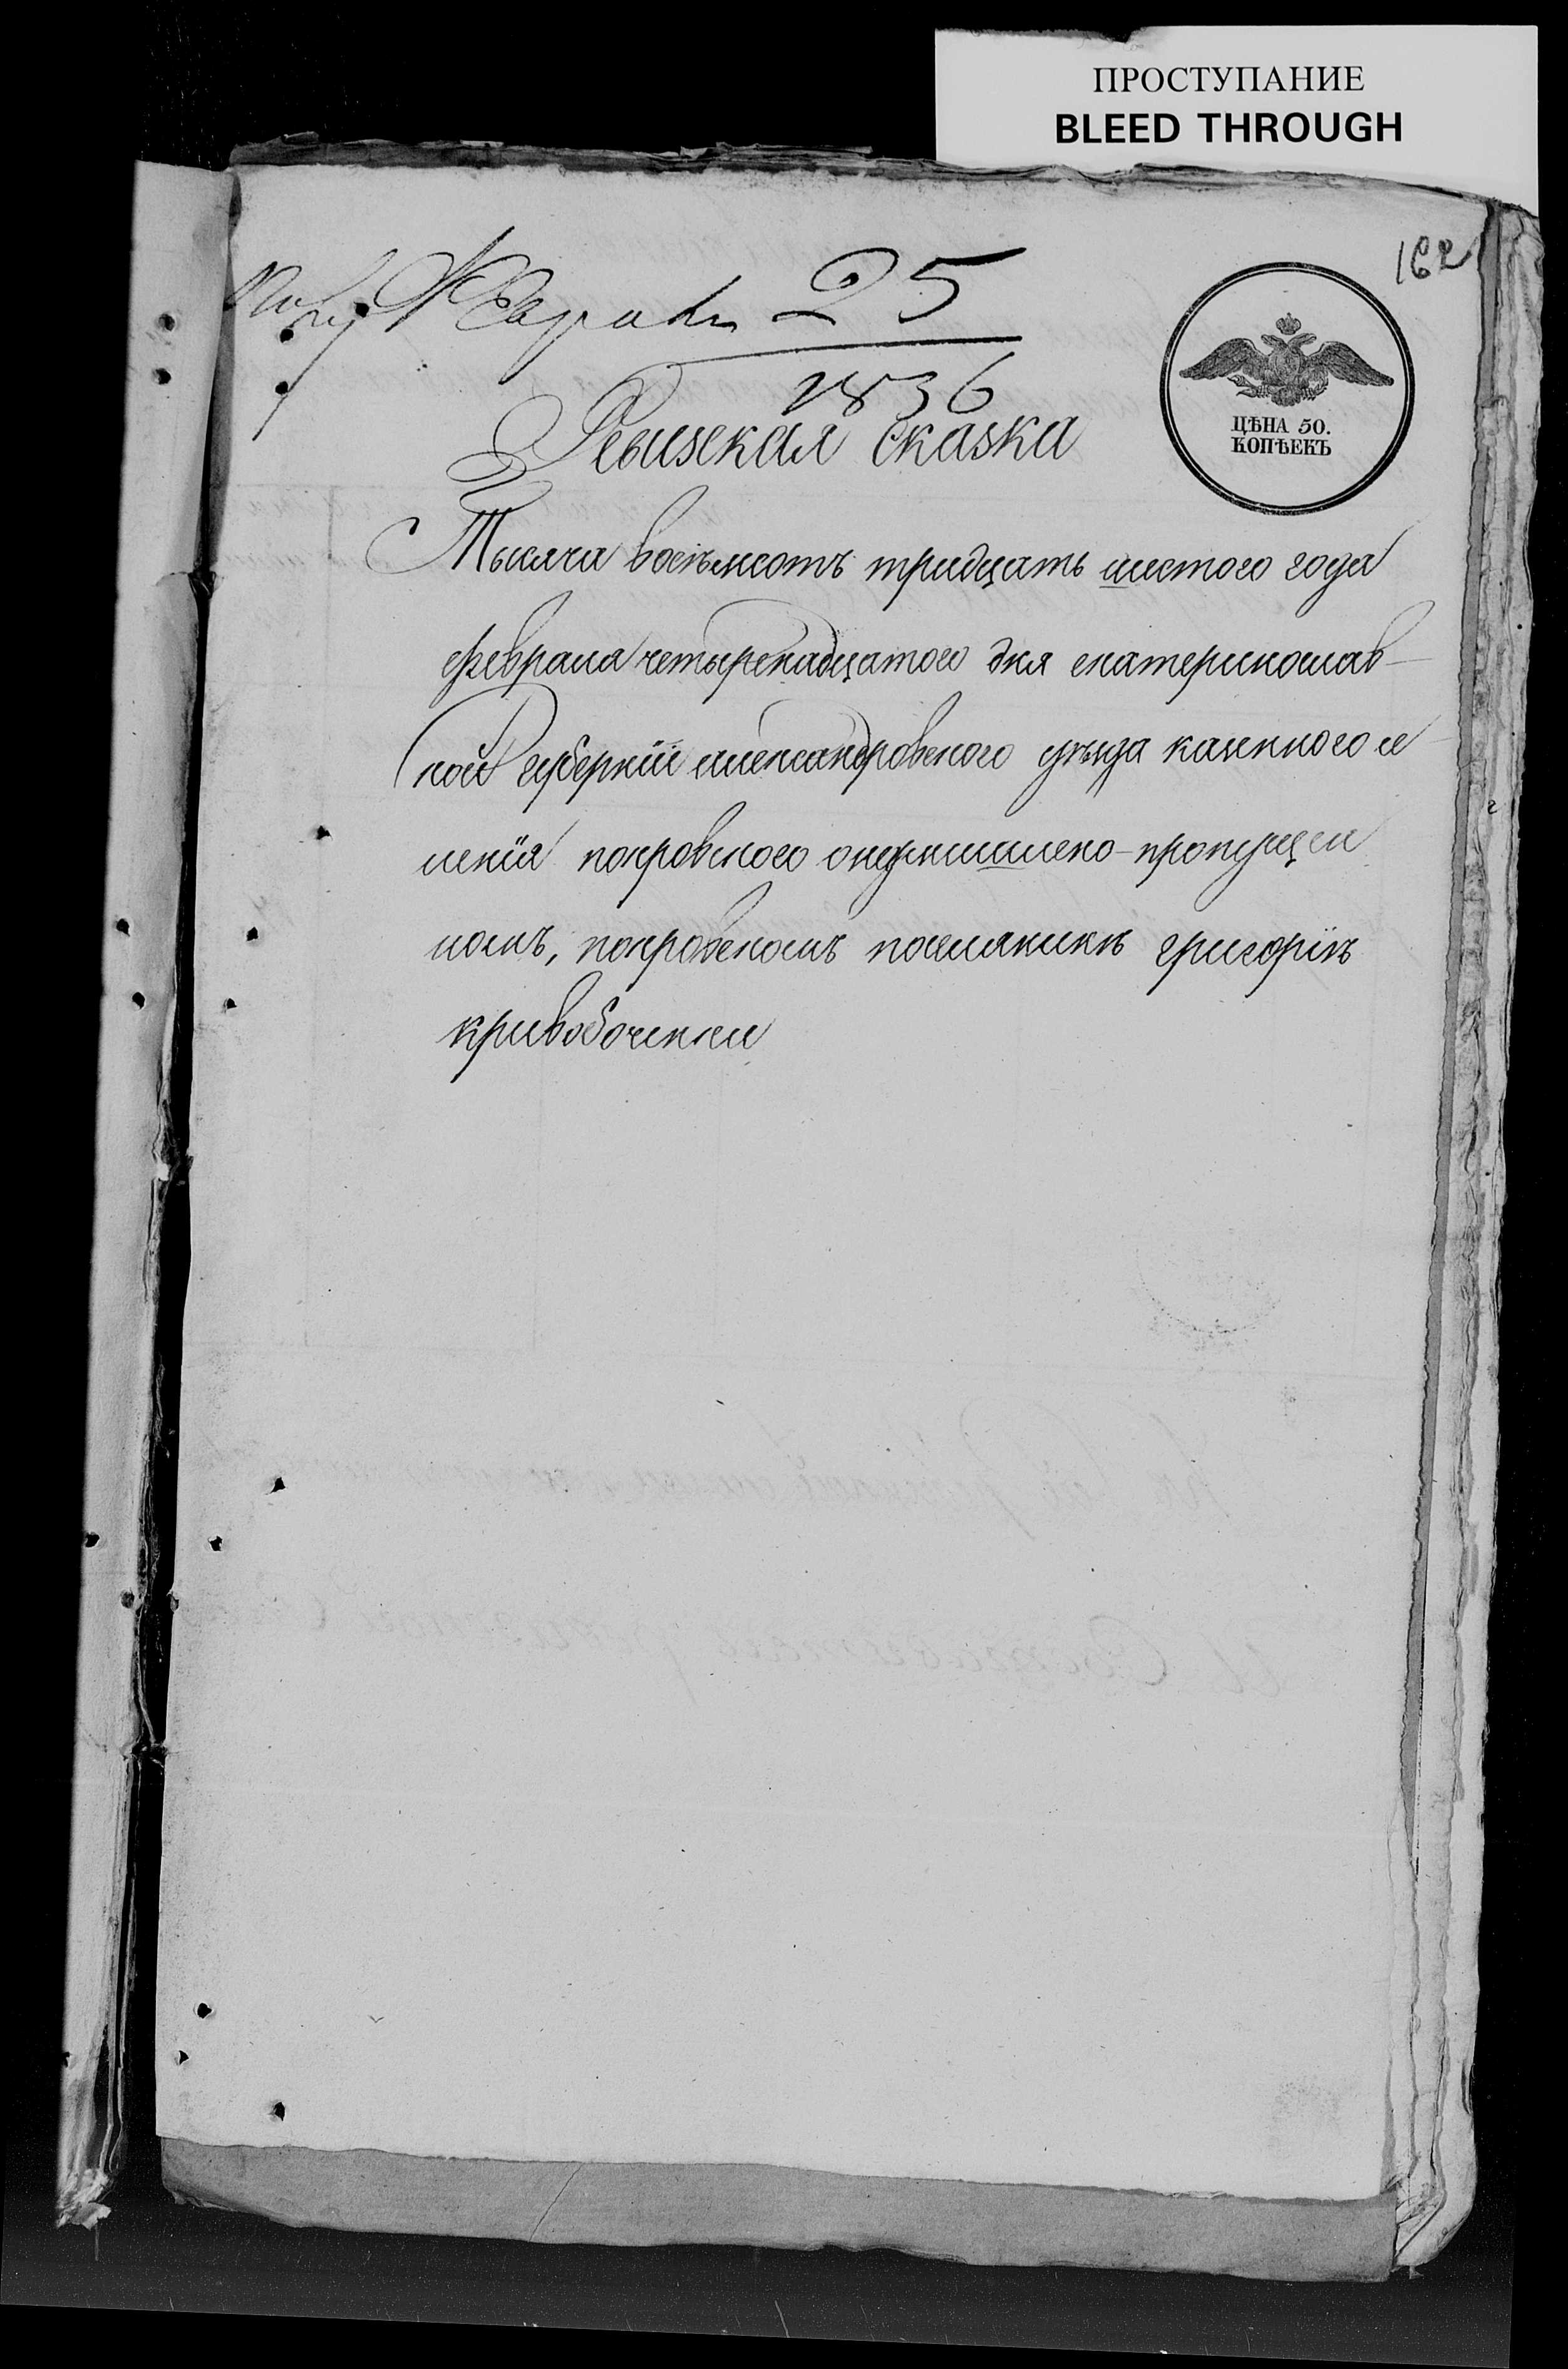 ПРОСТУПАНИЕ
BLEED THROUGH
162
Февраля 25
1836
ЦѢНА 50.
КОПѢЕКЪ
Ревизская сказка
Тысяча восѣмсотъ тридцать шестого года
февраля четыренадцатого дня екатеринослав-
ской губерніи александровского уѣзда казенного се-
ленія покровского о прошщен
номъ, покровскомъ поселянинѣ григоріѣ
кривобоченки